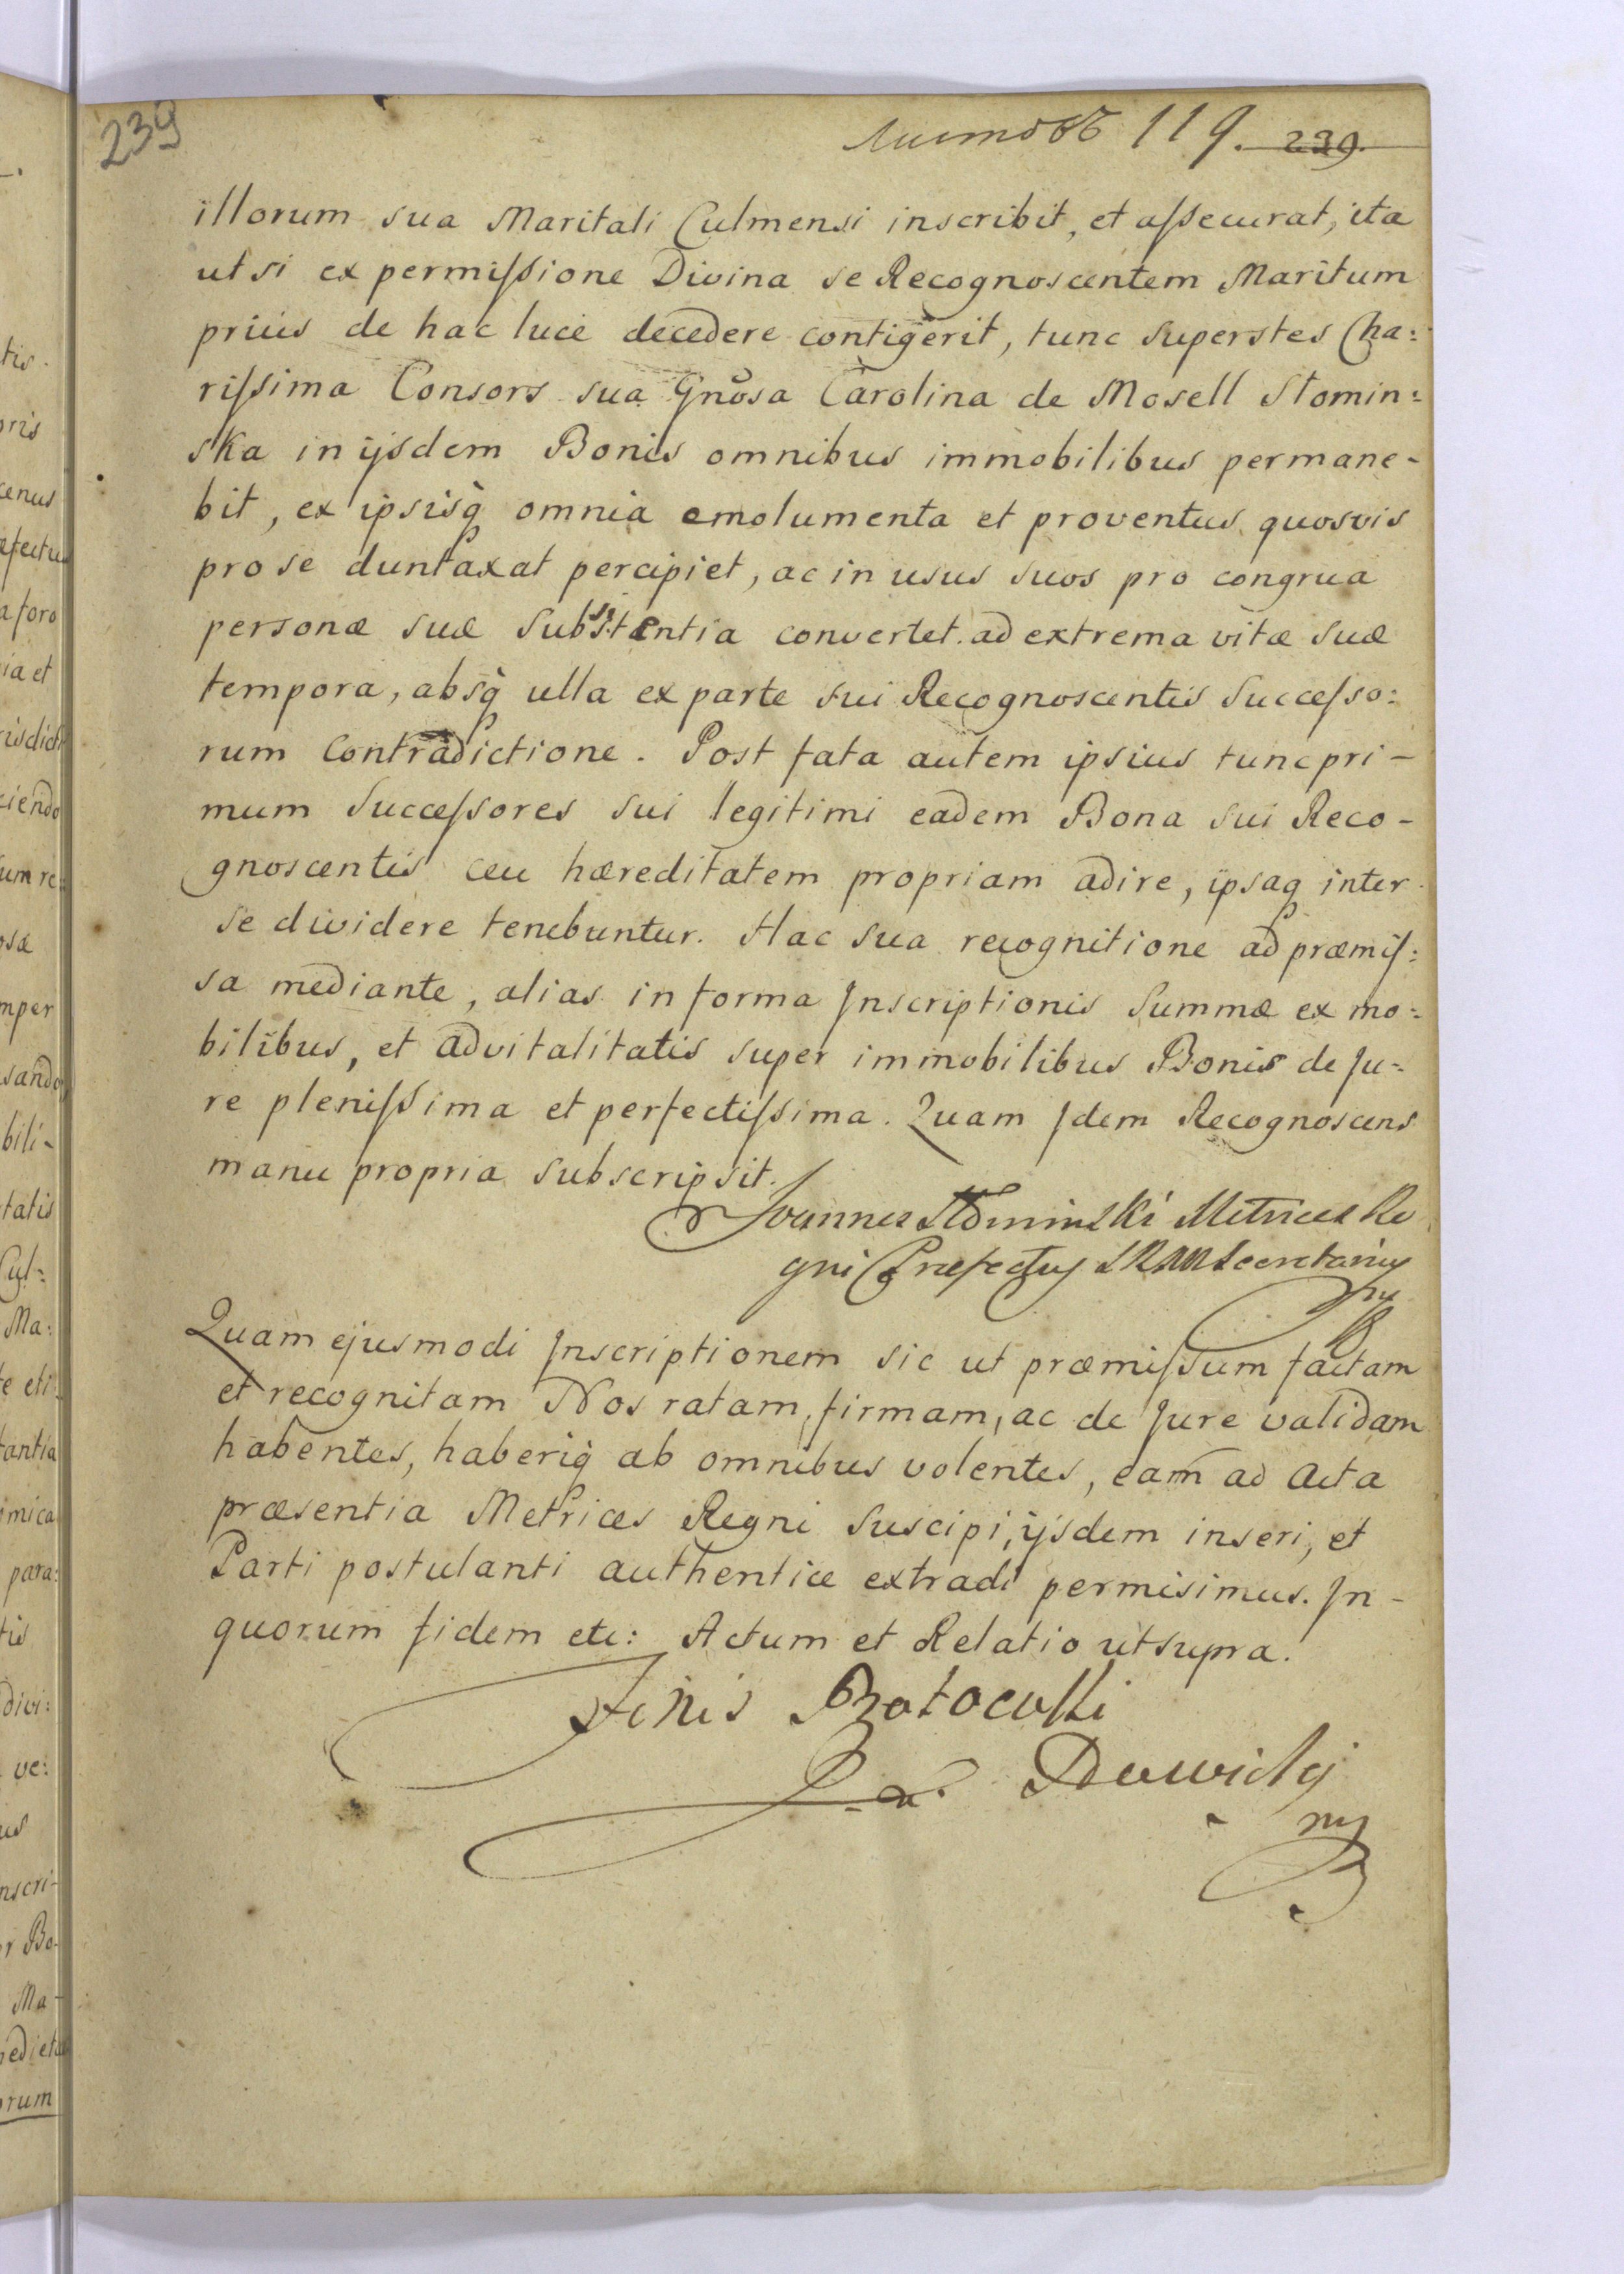 239
листовъ 119. 239.
illorum sua Maritali Culmensi inscribit, et aſsecurat, ita
ut si ex permiſsione Divina se Recognoscentem Maritum
prius de hac luce decedere contigerit, tunc superstes Cha:
riſsima Consors sua Gnosa Carolina de Mosell Słomin:
ska in ijsdem Bonis omnibus immobilibus permane-
bit, ex ipsisq̀ omnia emolumenta et proventus quosvis
pro se duntaxat percipiet, ac in usus suos pro congrua
personæ suæ Subsistentia convertet ad extrema vitæ suæ
tempora, absq̀ ulla ex parte sui Recognoscentis Succeſso:
rum Contradictione. Post fata autem ipsius tunc pri-
mum Succeſsores sui legitimi eadem Bona sui Reco-
gnoscentis ceu hæreditatem propriam adire, ipsaq inter
se dividere tenebuntur. Hac sua recognitione ad præmiſ:
sa mediante, alias in forma Inscriptionis Summæ ex mo:
bilibus, et advitalitatis super immobilibus Bonis de Ju:
re pleniſsima et perfectiſsima. Quam Idem Recognoscens
manu propria subscripsit.
Joannes Słominski Metrices Re
gni Præfectus SRM Secretarius
mp
Quam ejusmodi Inscriptionem sic ut præmiſsum factam
et recognitam Nos ratam, firmam, ac de Jure validam
habentes, haberiq̀ ab omnibus volentes, eam ad Acta
præsentia Metrices Regni Suscipi, ijsdem inseri, et
Parti postulanti authentice extradi permisimus. In-
quorum fidem etc: Actum et Relatio ut supra.
Finis Protoculli
mp